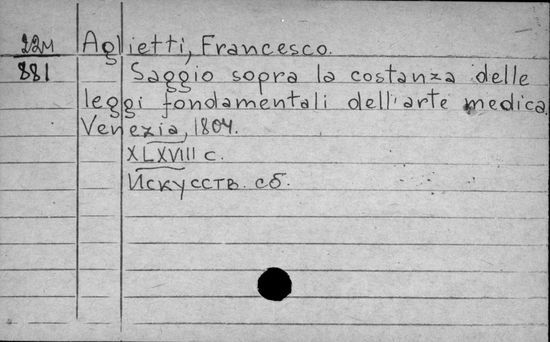 22м Aglietti, Francesco.
881 Saggio sopra la costanza delle
leggi fondamentali dell'arte medica.
Venezia, 1804.
XLXVIII с.
Искусств. сб.